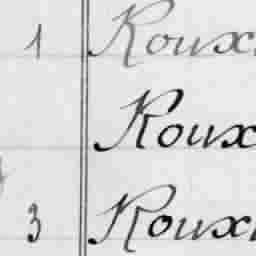 1 Roux
Roux
3 Roux